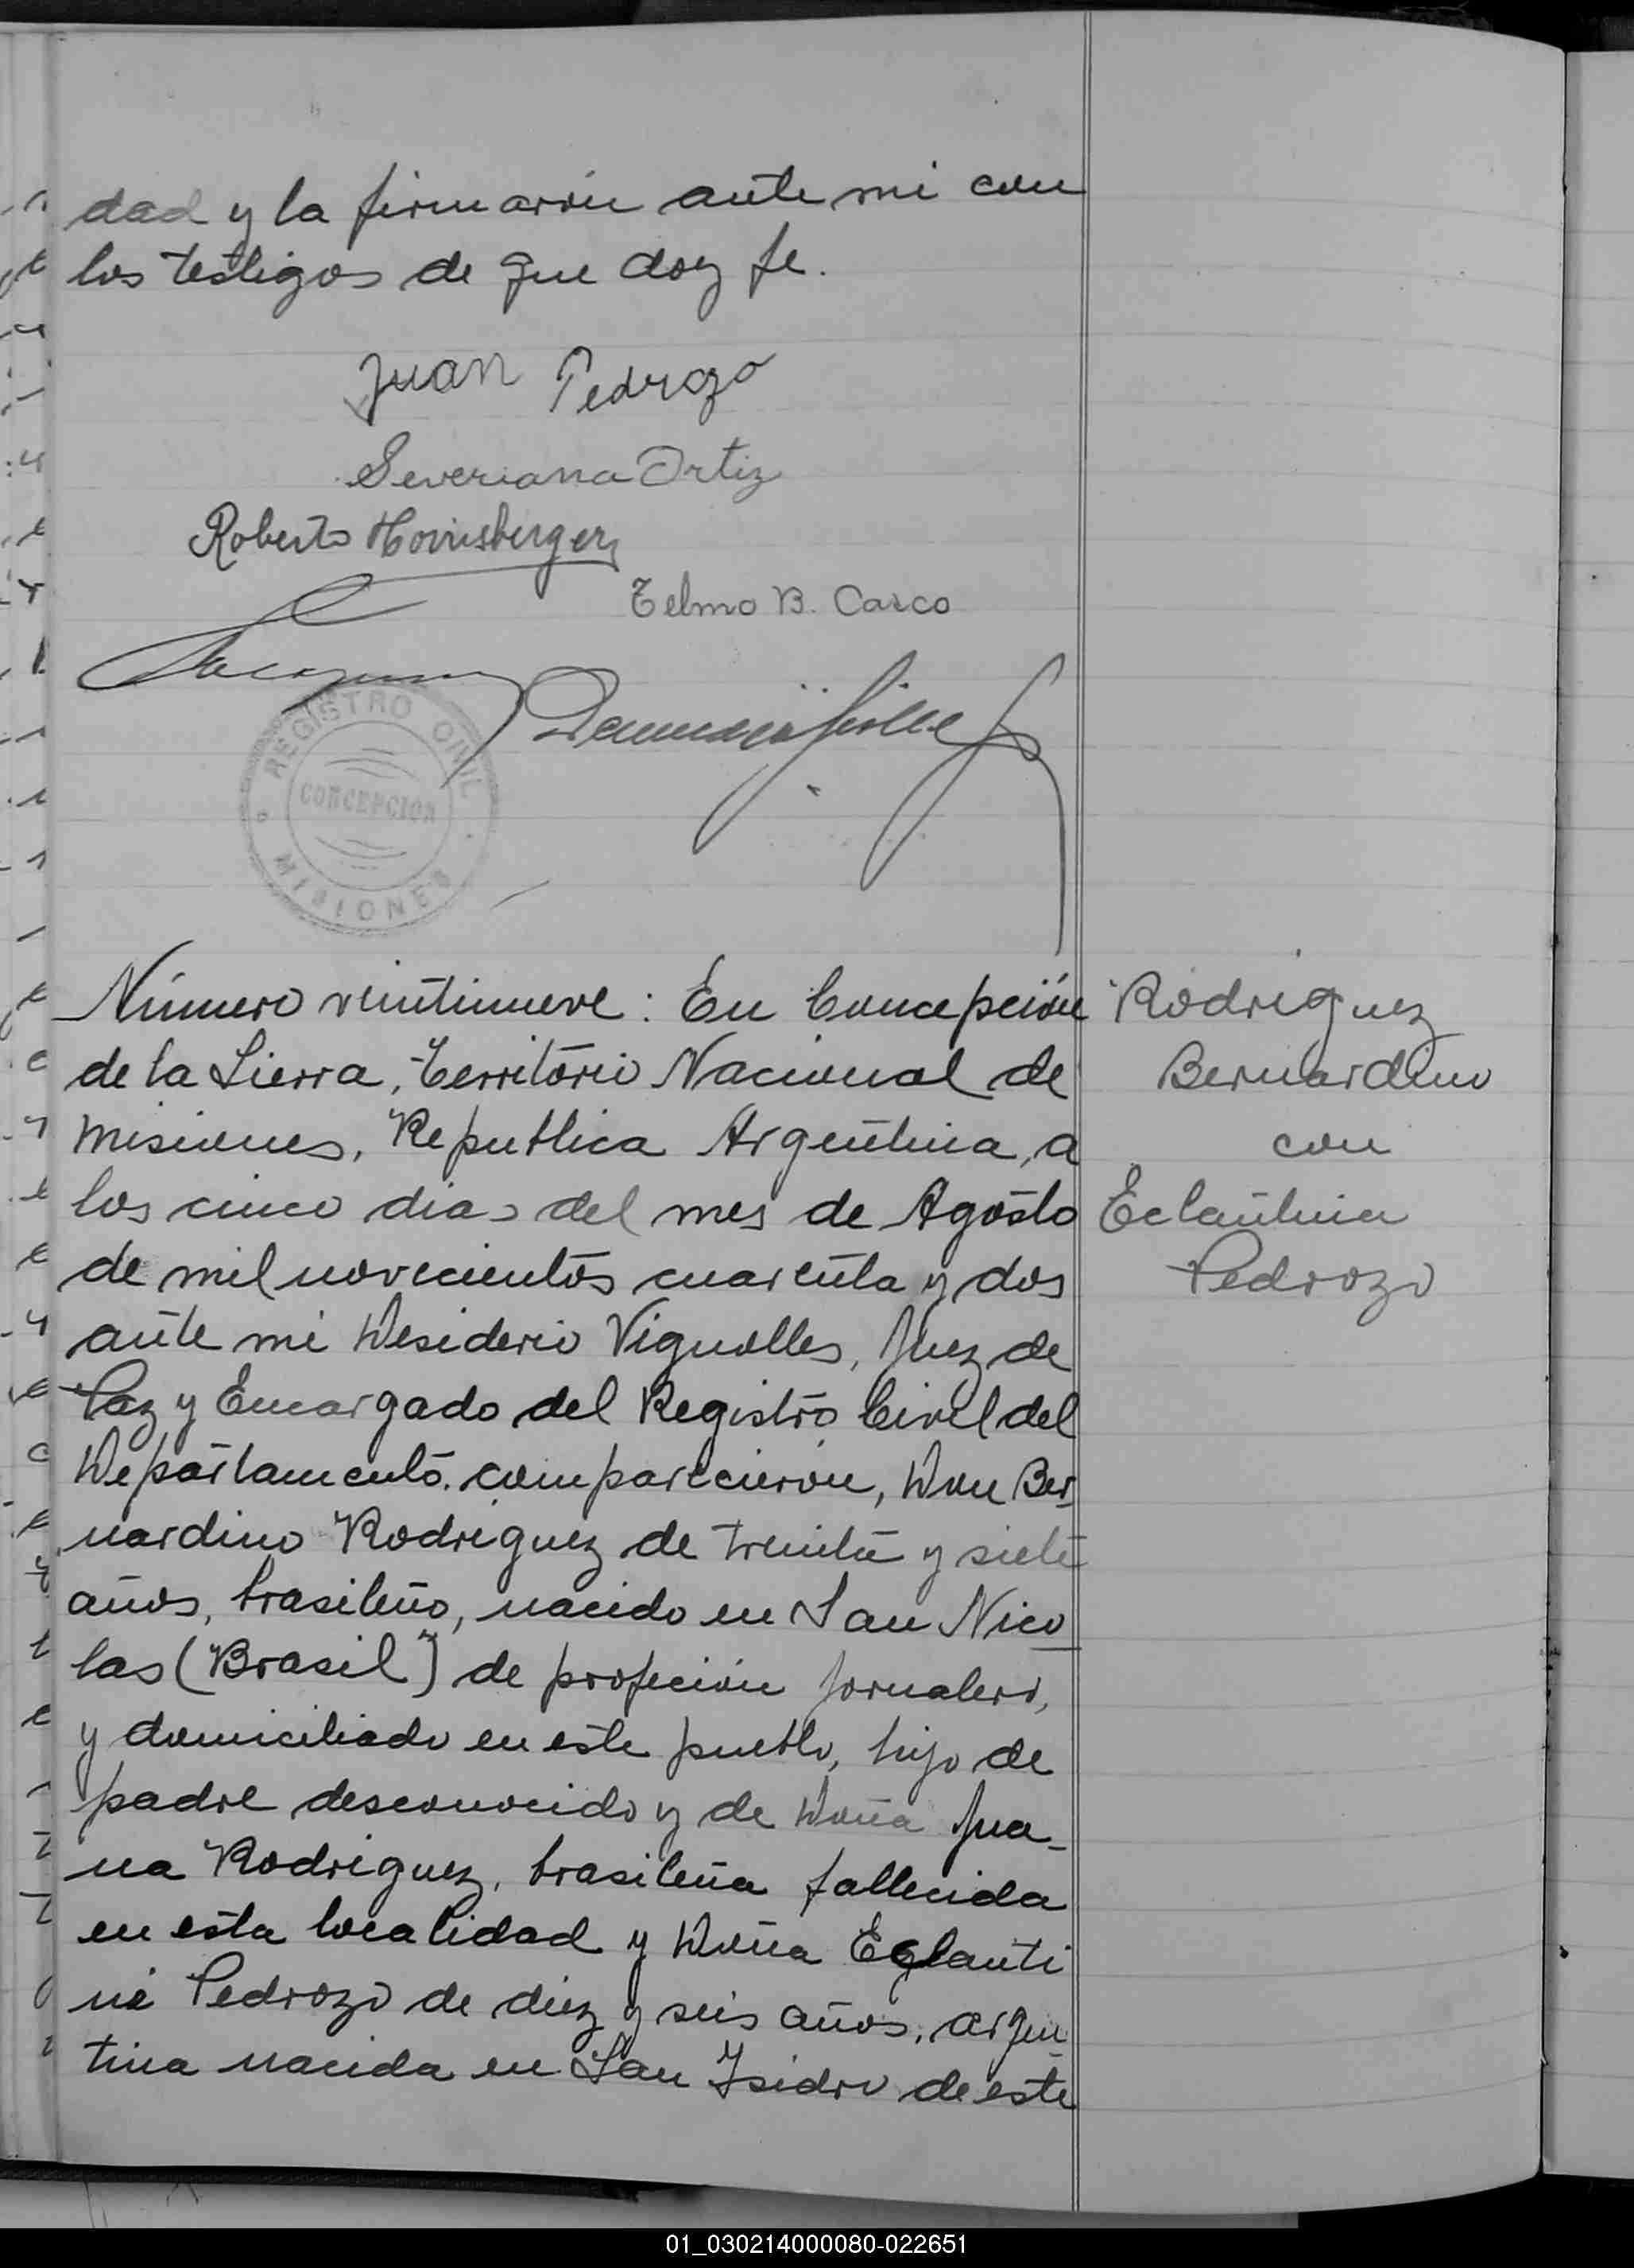 dad y la firmaron ante mi con
los testigos de que doy fe.
Juan Pedrozo
Severiana Ortiz
Roberto Horrisberger
Telmo B. Carco
REGISTRO CIVIL
CONCEPCION
MISIONES
Número veintinueve: En Concepción
de la Sierra, Territorio Nacional de
Misiones, Republica Argentina, a
los cinco dias del mes de Agosto
de mil novecientos cuarenta y dos
ante mi Desiderio Vignolles, Juez de
Paz y Encargado del Registro Civil del
Departamento. comparecieron, Don Ber
nardino Rodriguez de treinta y siete
años, brasileño, nacido en San Nico
las (Brasil) de profeción jornalero,
y domiciliado en este pueblo, hijo de
padre desconocido y de Doña Jua-
na Rodriguez, brasileña fallecida
en esta localidad y Doña Eglanti
na Pedrozo de diez y seis años, argen
tina nacida en San Isidro de este
Rodriguez
Bernardino
con
Eclantina
Pedrozo
01_030214000080-022651